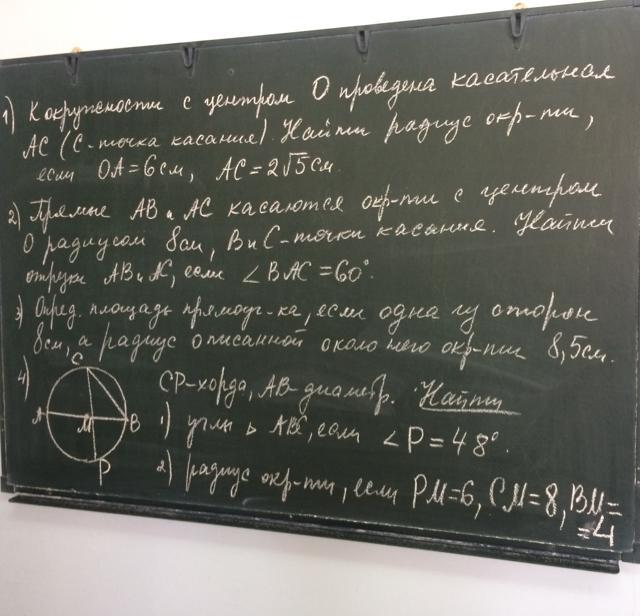 1) К окружности с центром О проведена касательная
АС (С-точка касания). Найти радиус окр-ти,
если ОА=6см, АС=2√5см.
2) Прямые АВ и АС касаются окр-ти с центром
О радиусом 8см, В и С-точки касания. Найти
отрезки АВ и АС, если ∠ВАС=60°.
3) Опред. площадь прямоуг-ка, если одна из сторон
8см, а радиус описанной около него окр-ти 8,5см.
4) СР-хорда, АВ-диаметр. Найти
1) углы △ АВС, если ∠Р=48°.
2) радиус окр-ти, если РМ=6, СМ=8, ВМ=
=4
С
А М В
Р